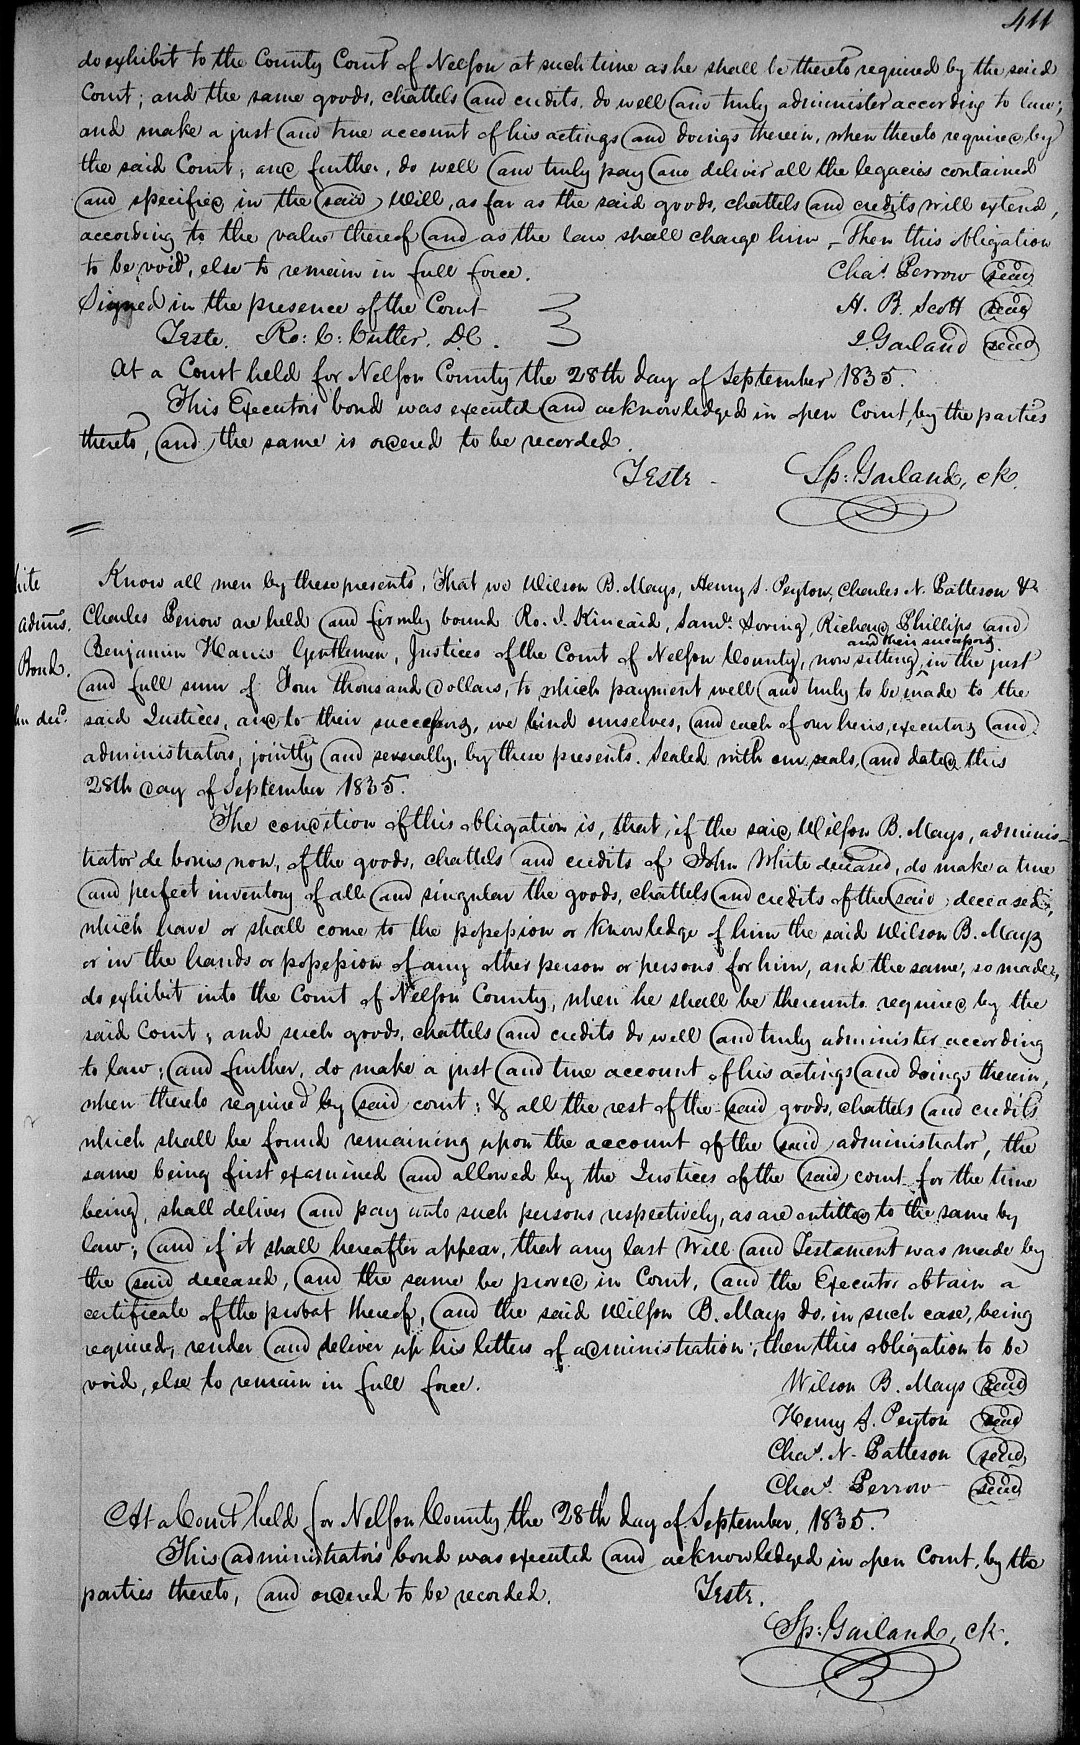 411
do exhibit to the County Court of Nelson at such time as he shall be thereto required by the said
Court; and the same goods, chattels and credits, do well and truly administer according to law;
and make a just and true account of his actings and doings therein, when thereto required by
the said Court; and further, do well and truly pay and deliver all the legacies contained
and specified in the said Will, as far as the said goods, chattels and credits will extend,
according to the value thereof and as the law shall charge him, Then this obligation
to be void, else to remain in full force.
Chas. Perrow seal
Signed in the presence of the Court
H. B. Scott seal
Teste. Ro: C: Cutler. D.C.
Garland seal
At a Court held for Nelson County the 28th day of September 1835.
This Executors bond was executed and acknowledged in open Court, by the parties
thereto, and the same is ordered to be recorded.
Teste - Sp: Garland, ck.
hite
adms.
Bond.
decd.
Know all men by these presents, That we Wilson B. Mays, Henry S. Peyton, Charles N. Patteson &
Charles Perrow are held and firmly bound Ro. J. Kincaid, Saml. Loving, Richard Phillips and
Benjamin Harris Gentlemen, Justices of the Court of Nelson County, now sitting, and their successors in the just
and full sum of Four thousand dollars, to which payment well and truly to be made to the
said Justices, and to their successors, we bind ourselves, and each of our heirs, executors and
administrators, jointly and severally, by these presents. Sealed with our seals, and dated this
28th day of September 1835.
The condition of this obligation is, that, if the said Wilson B. Mays, adminis-
trator de bonis non, of the goods, chattels and credits of John White deceased, do make a true
and perfect inventory of all and singular the goods, chattels and credits of the said deceased,
which have or shall come to the possession or knowledge of him the said Wilson B. Mays
or in the hands or possession of any other person or persons for him, and the same, so made,
do exhibit into the Court of Nelson County, when he shall be thereunto required by the
said Court; and such goods, chattels and credits do well and truly administer according
to law; and further, do make a just and true account of his actings and doings therein,
when thereto required by said court; & all the rest of the said goods, chattels and credits
which shall be found remaining upon the account of the said administrator, the
same being first examined and allowed by the Justices of the said court for the time
being, shall deliver and pay unto such persons respectively, as are entitled to the same by
law; and if it shall hereafter appear, that any last Will and Testament was made by
the said deceased, and the same be proved in Court, and the Executor obtain a
certificate of the probat thereof, and the said Wilson B. Mays do, in such case, being
required, render and deliver up his letters of administration; then this obligation to be
void, else to remain in full force.
Wilson B. Mays seal
Henry S. Peyton seal
Chas. N. Patteson seal
Chas. Perrow seal
At a Court held for Nelson County the 28th day of September, 1835.
This administrators bond was executed and acknowledged in open Court, by the
parties thereto, and ordered to be recorded.
Teste.
Sp: Garland, ck.